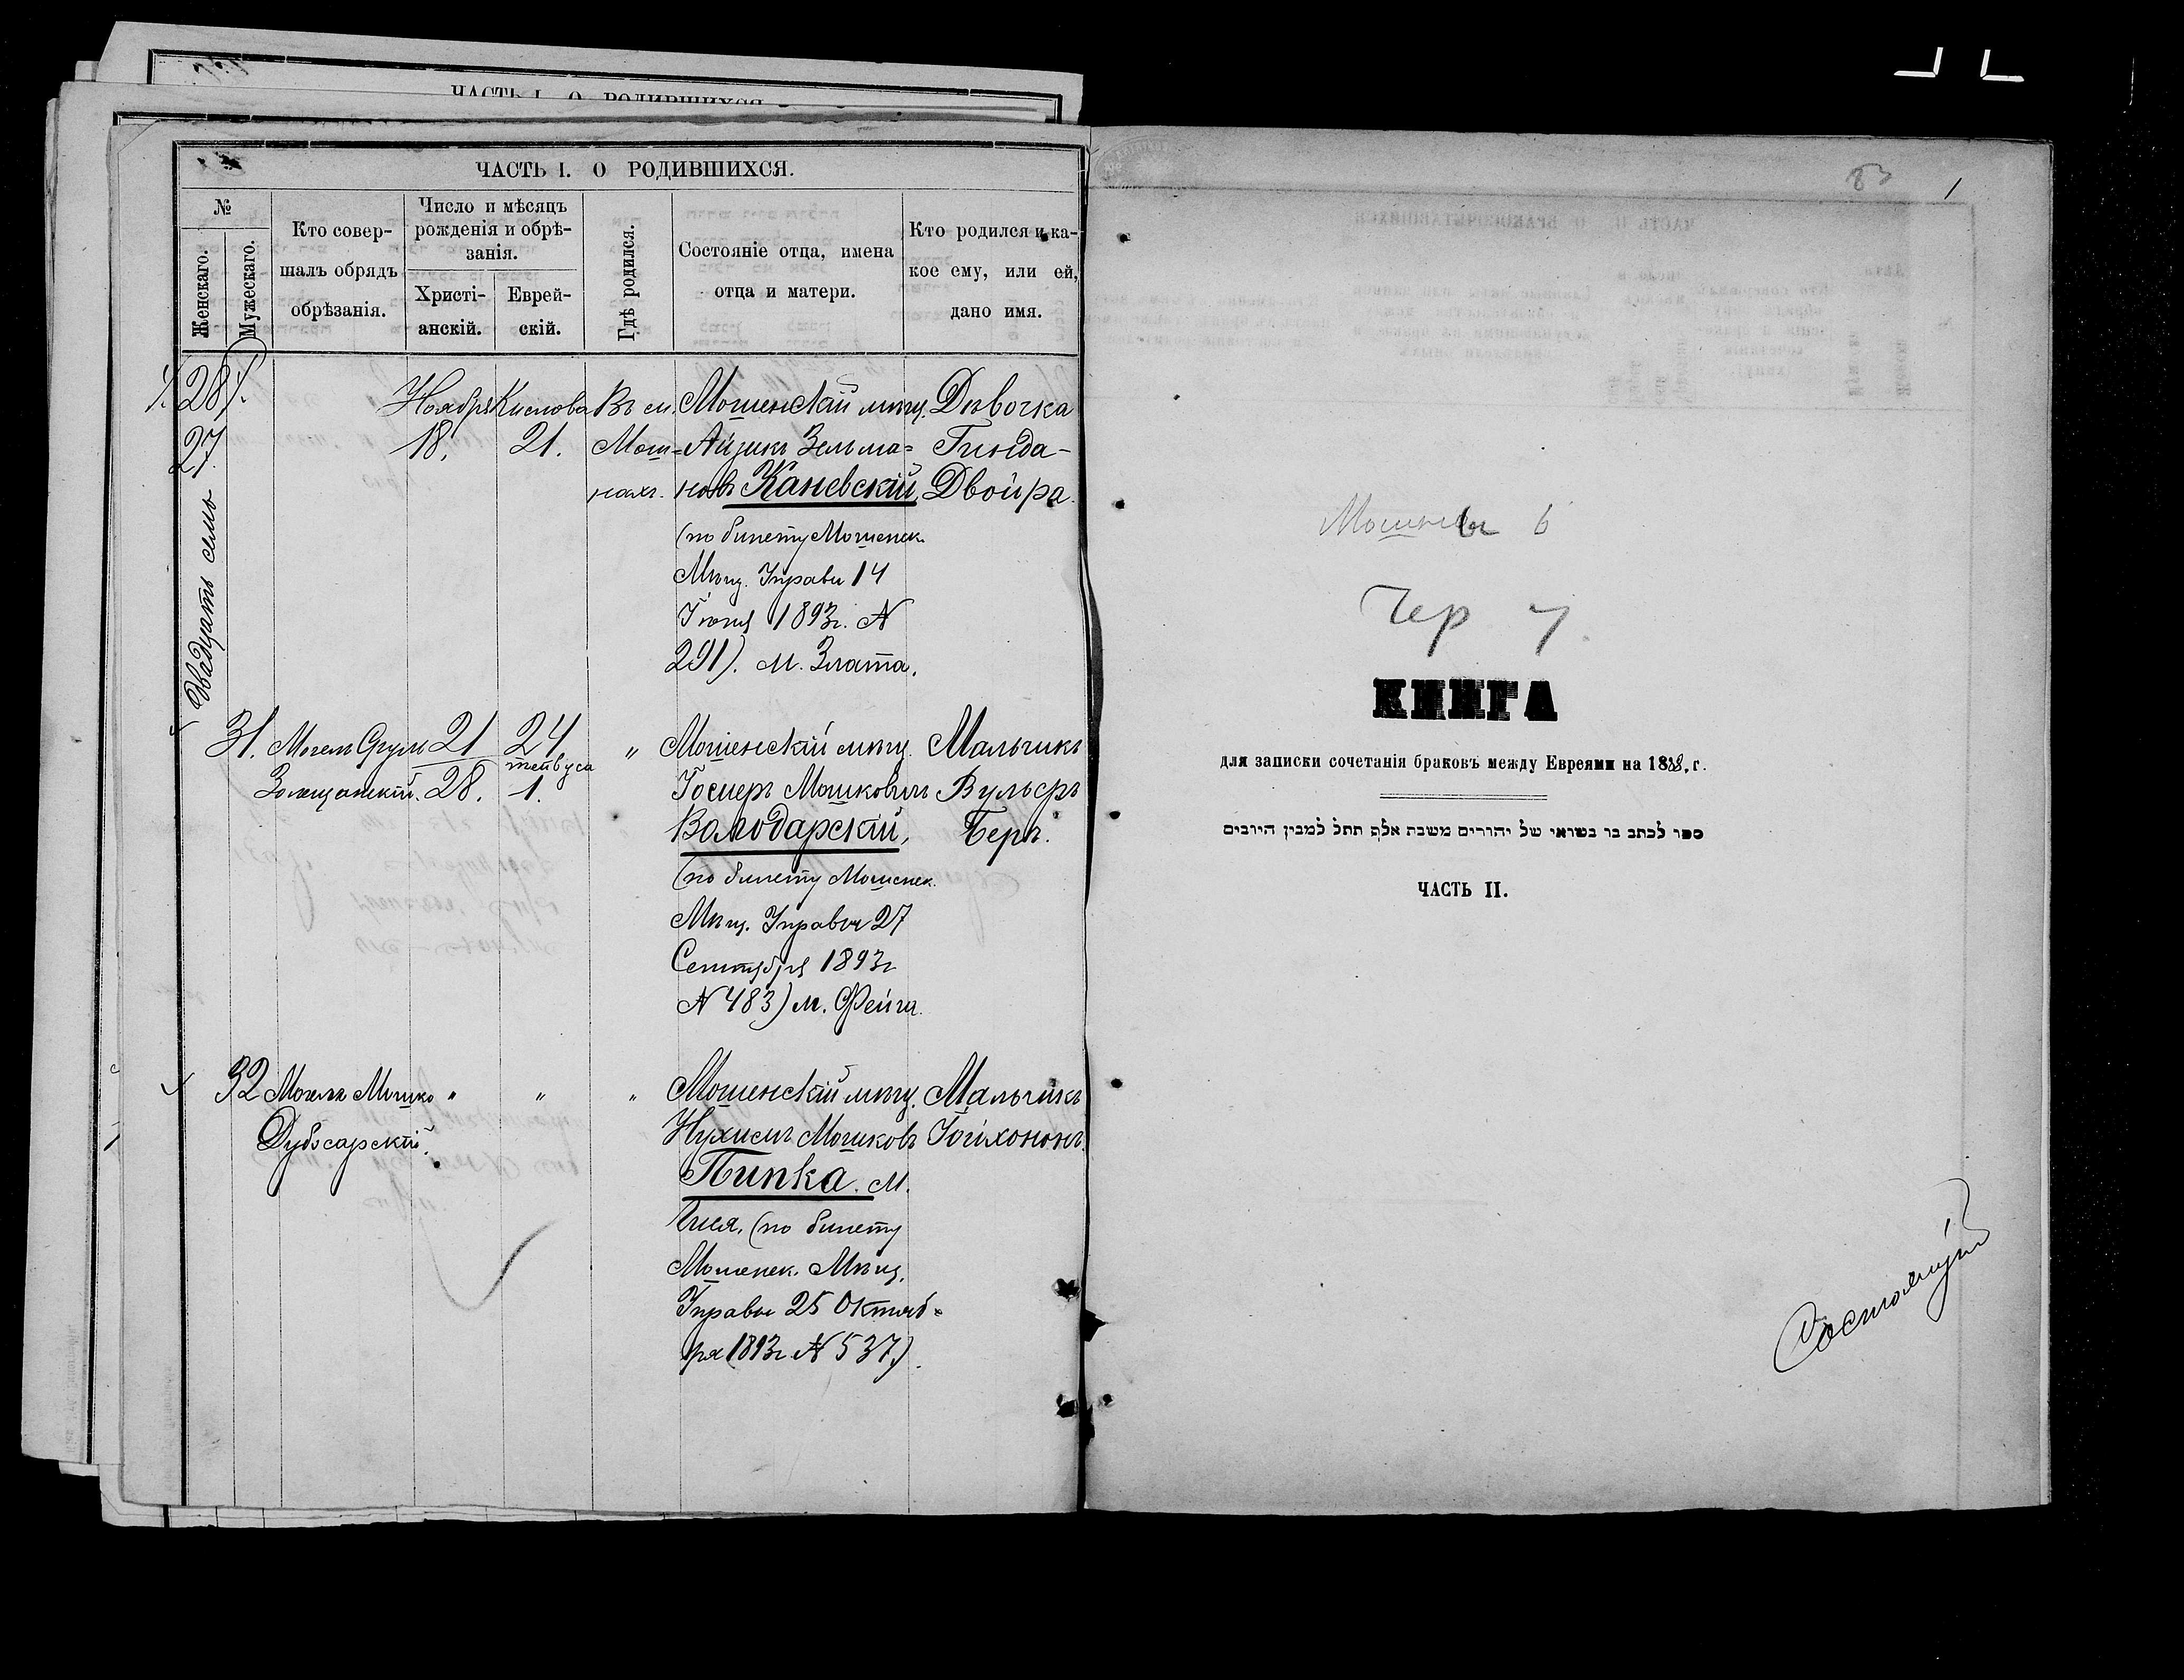 ЧАСТЬ I. О РОДИВШИХСЯ.
№
Женскаго.
Мужескаго.
Кто совер-
шалъ обрядъ
обрѣзанія.
Число и мѣсяцъ
рожденія и обрѣ-
занія.
Христі-
анскій.
Еврей-
скій.
Гдѣ родился.
Состояніе отца, имена
отца и матери.
Кто родился и ка-
кое ему, или ей,
дано имя.
28
27
Двадцать семь
Ноября
18.
Кислова
21.
Въ м.
Мош-
нахъ.
Мошенскій мѣщ.
Айзикъ Зельма-
новъ Каневскій,
(по билету Мошенск.
Мѣщ. Управы 14
Іюня 1893г. №
291). м. Злата.
Дѣвочка
Гинда-
Двойра.
31. Могелъ Сруль
Золещанскій.
21
28.
24
тейвуса
1.
"
Мошенскій мѣщ.
Іосиеръ Мошковичъ
Володарскій,
(по билету Мошенск.
Мѣщ. Управы 27
Сентября 1893г
№ 483) м. Фейга.
Мальчикъ
Вульфъ
Беръ.
32 Могелъ Мошко
Дубосарскій.
"
"
"
Мошенскій мѣщ.
Нухимъ Мошковъ
Пипка. м.
(по билету
Мошенск. Мѣщ.
Управы 25 Октяб-
ря 1893г № 537).
Мальчикъ
Іойхононъ.
83
1
Мошны 6
Чер 7
КНИГА
для записки сочетанія браковъ между Евреями на 18 г.
ספר לכתב בו נשואי של יהודים משנת אלף תתל למנין היונים
ЧАСТЬ II.